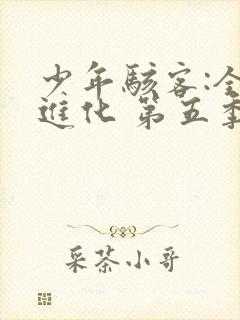 少年駭客:全
進化 第五季
采茶小哥